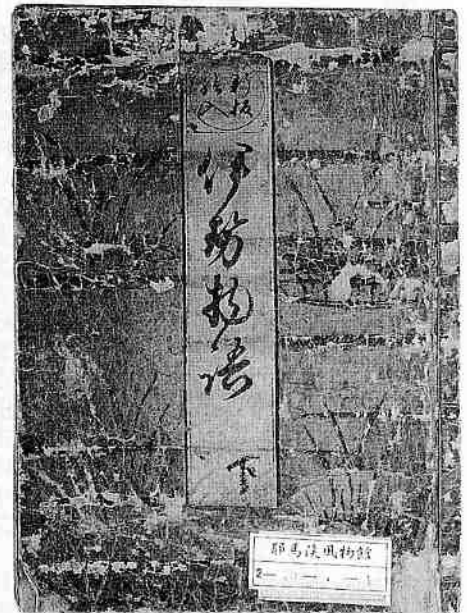 新板
絵入
伊勢物語
下
耶馬渓風物館